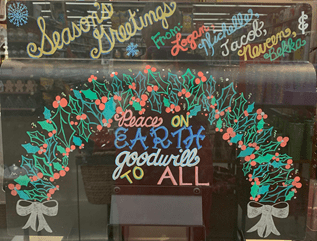 Season's
Greetings
From:
Logan
Michelle
Jacob,
&
Nevcen,
Debra
Peace ON
EARTH
goodwill
TO ALL